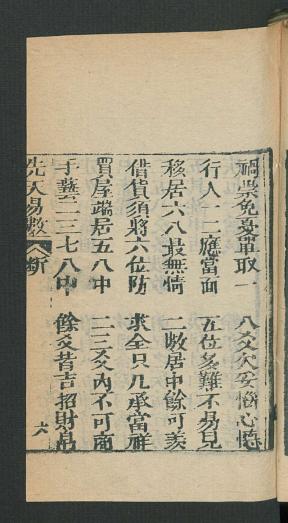 禍祟免憂單取一　八爻欠妥惱心懷
行人一二應當面　五位多難不易見
移居六八最無情　二數居中餘可羨
借貸須將六位防　求全只几承當祥
買屋端居五八中　二三爻內不可商
手藝一二三七八中　餘爻昔吉招財
先天易數　斷　六